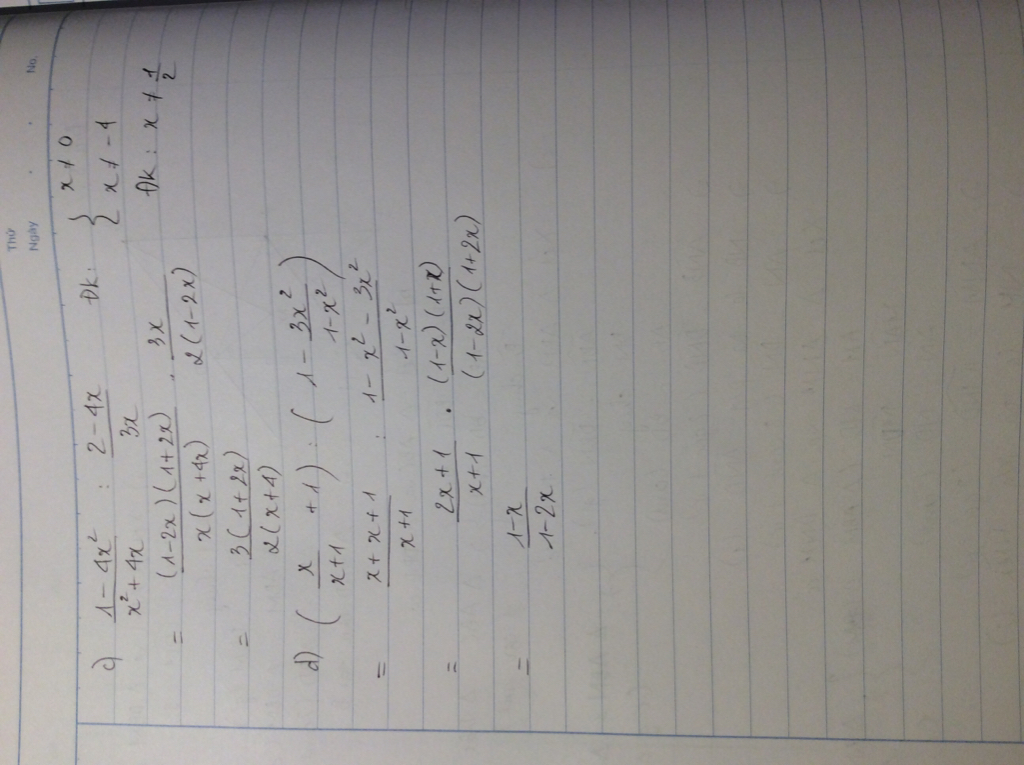 Thứ
Ngày
No.
c) \frac{1-4x^2}{x^2+4x} : \frac{2-4x}{3x} ĐK: \begin{cases} x \neq 0 \\ x \neq -4 \end{cases}
= \frac{(1-2x)(1+2x)}{x(x+4x)} . \frac{3x}{2(1-2x)} ĐK: x \neq \frac{1}{2}
= \frac{3(1+2x)}{2(x+4)}
d) (\frac{x}{x+1} +1) : (1-\frac{3x^2}{1-x^2})
= \frac{x+x+1}{x+1} : \frac{1-x^2-3x^2}{1-x^2}
= \frac{2x+1}{x+1} . \frac{(1-x)(1+x)}{(1-2x)(1+2x)}
= \frac{1-x}{1-2x}